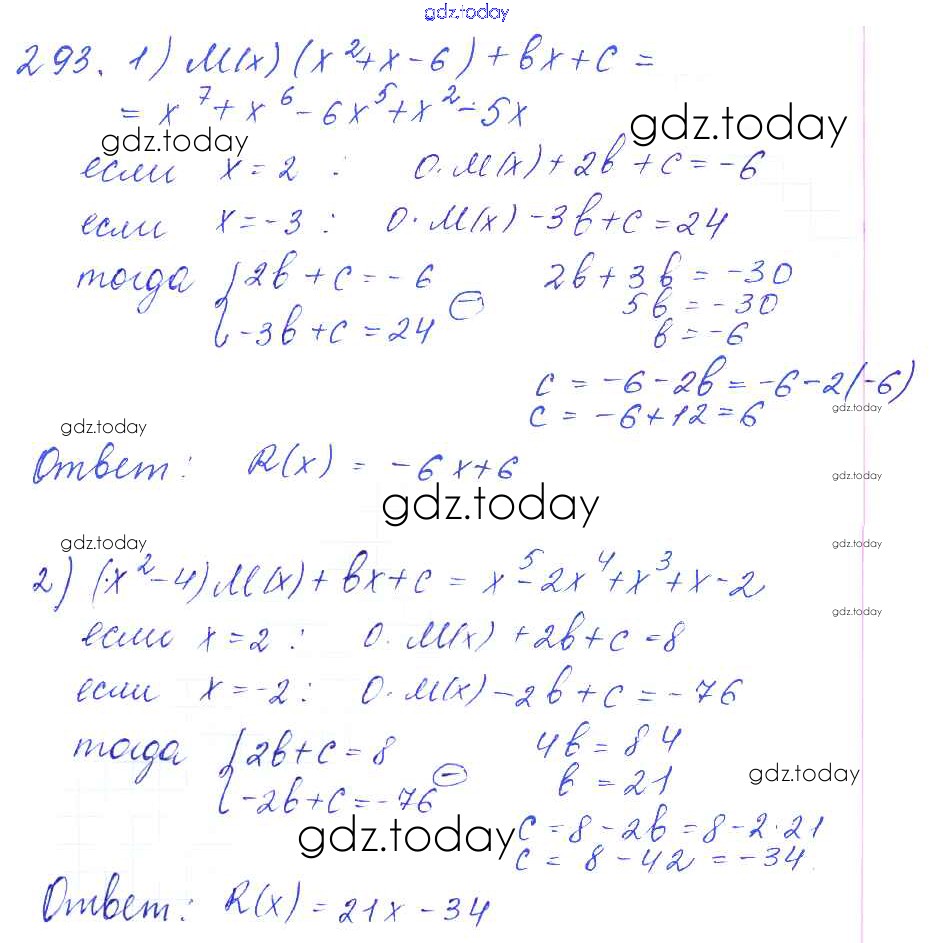 gdz.today
293. 1) M(x) (x²+x-6)+bx+c =
= x⁷+x⁶-6x⁵+x²-5x
gdz.today
gdz.today
если x=2 : 0·M(x)+2b+c=-6
если x=-3 : 0·M(x)-3b+c=24
тогда { 2b+c=-6
-3b+c=24
⊖
2b+3b=-30
5b=-30
b=-6
c=-6-2b=-6-2(-6)
c=-6+12=6
gdz.today
gdz.today
Ответ: R(x) = -6x+6
gdz.today
gdz.today
gdz.today
gdz.today
2) (x²-4)M(x)+bx+c = x⁵-2x⁴+x³+x-2
gdz.today
если x=2 : 0·M(x)+2b+c=8
если x=-2 : 0·M(x)-2b+c=-76
тогда { 2b+c=8
-2b+c=-76
⊖
4b=84
b=21
gdz.today
gdz.today
c=8-2b=8-2·21
c=8-42=-34.
Ответ: R(x)=21x-34